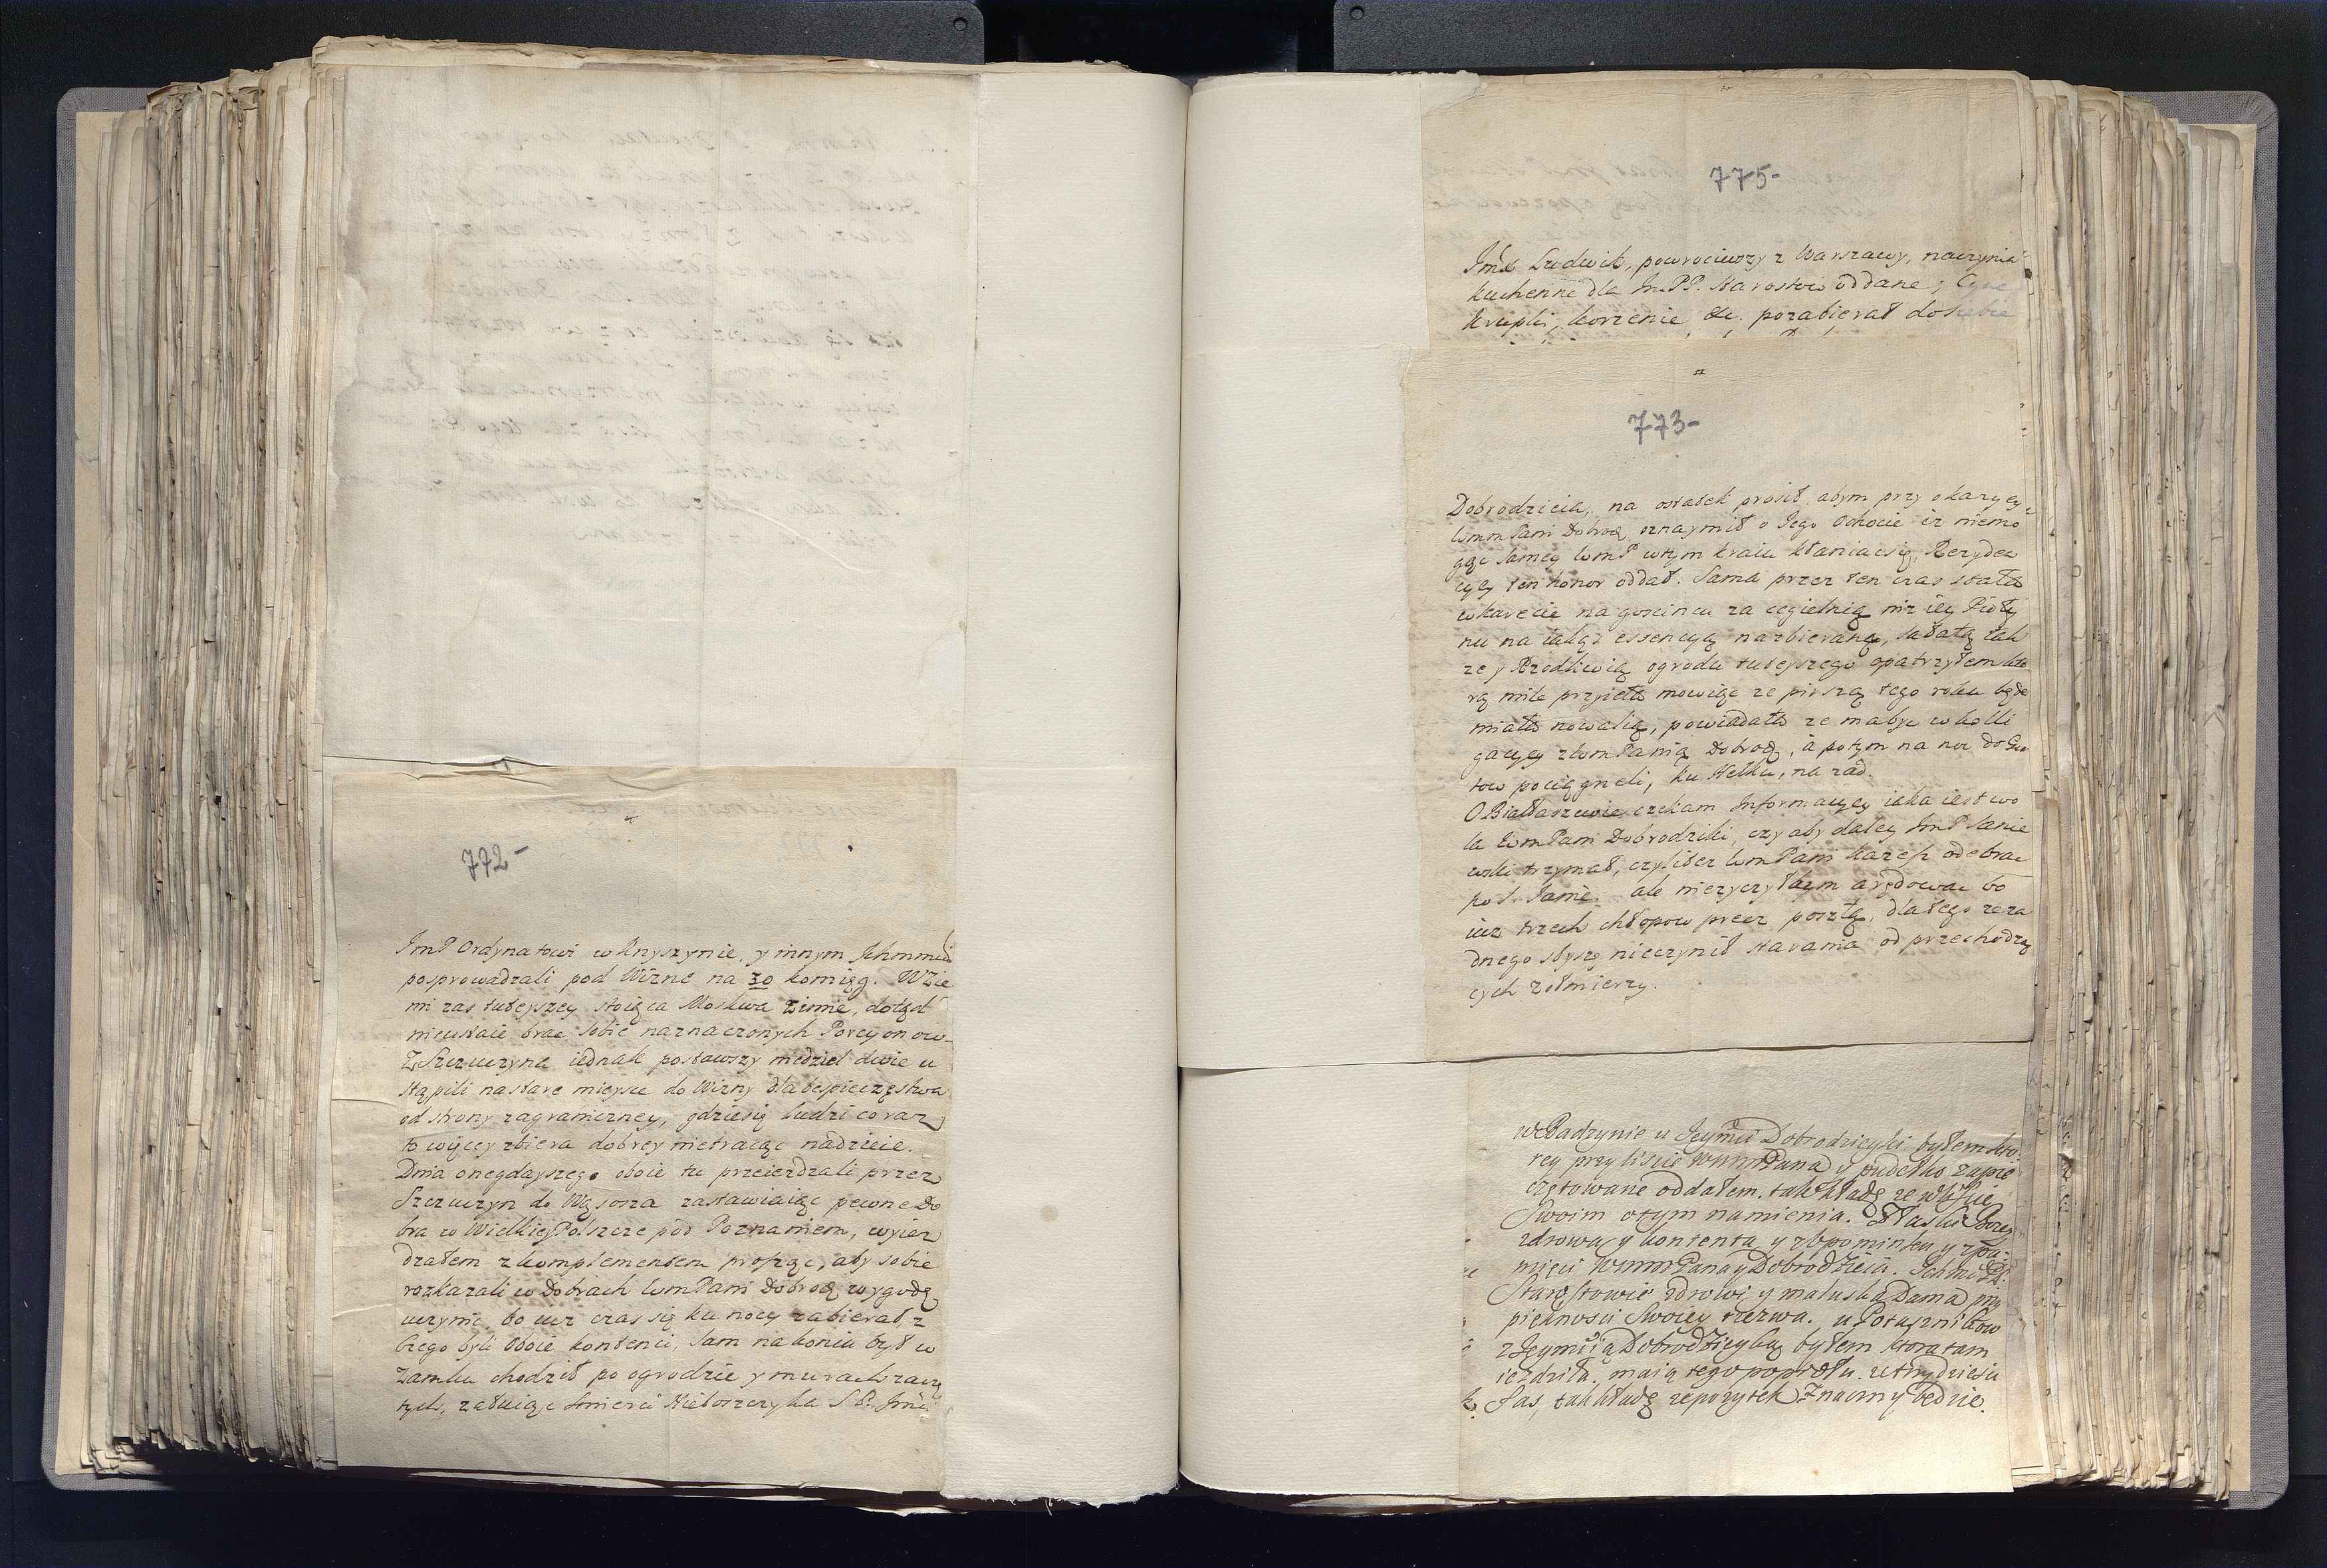 772-
ImP Ordynatowi w Knyszynie, y innym Ichmmci
posprowadzali pod Wiznę na 30 komięg. WZie
mi zas tuteyszey stoiąca Moskwa zimie, dotąd
nieustaie brac sobie naznaczonych Porcyonow.
Z Szczuczyna iednak postawszy niedziel dwie u
stąpili nastare mieysce do Wizny dla bespieczęstwa
od strony zagraniczney, gdziesię ludzi coraz
to więcey zbiera dobrey nietracąc nadzieie.
Dnia onegdayszego oboie tu przeiezdzali przez
Szczuczyn do Wąsosza zastawiaiąc pewne Do
bra w Wielkiey Polszcze pod Poznaniem, wyiez
dzałem z komplementem prosząc, aby sobie
rozkazali w Dobrach WmPani Dobrod wygodę
uczynic, bo iuz czas się ku nocy zabierał, z
czego byli Oboie kontenci, Sam na koniu był w
Zamku chodził po ogrodzie y murach zaczę
tych, załuiąc smierci Nieboszczyka S P. Jmci
775-
Ludwik, powrociwszy z Warszawy, naczynia
kuchenne dla Im.PP. Starostow oddane,
krupki, korzenie &c. pozabierał do siebie
773-
Dobrodzieia, na ostatek prosił, abym przy okazyey
WmmPani Dobrod oznaymił o Jego Ochocie iz niemo
gąc Samey WmP wtym kraiu kłaniac się, Rezyden
cyey ten honor oddał. Sama przez ten czas stała
w karecie na goscincu za cegielnią niz iey Piołu
nu na iakąs essencyą nazbierano, sałatą tak
ze y Rzodkiewką ogrodu tuteyszego opatrzyłem kto
rą mile przyieła mowiąc ze pirszą tego roku będe
miała nowalią, powiadała ze ma byc w kolli
gacyey z WmPanią Dobrod, a potym na noc do
tow pociągneli, ku Hełku, na zad.
O Białaszewie czekam Informacyey iaka iest wo
la WmPani Dobrodziki, czy aby daley ImP Janie
wski trzymał, czyli tez WmPani kazesz odebrac
po S. Janie. ale nie zyczyłbym arędowac bo
iuz trzech chłopow precz poszło, dlatego ze za
dnego słyszę nieczynił starania od przechodzą
cych zołnierzy.
w Radzynie u Jeymci Dobrodzieyki byłem kto
rey przy liscie WmmPana y pudełko zapie
czętowane oddałem. tak kładę ze w liscie
Swoim otym namienia. Z Łaski Bozey
zdrowa y kontenta y z upominku y z pa:
mięci WmmPana y Dobrodzieia. Ichmc PP.
Starostowie zdrowi y maluska Dama przy
pięknosci Swoiey czerwa. u Potasznikow
z Jeymcią Dobrodzieyką byłem ktora tam
iezdziła. maią tego popiołu. ze trzydziesci
Łas, tak kładę ze pozytek Znaczny będzie.